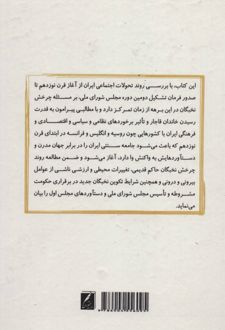 این کتاب، با بررسی روند تحولات اجتماعی ایران از آغاز قرن نوزدهم تا
صدور فرمان تشکیل دومین دوره مجلس شورای ملی، بر مسئله چرخش
نخبگان در این برهه از زمان تمرکز دارد و با مطالبی پیرامون به قدرت
رسیدن خاندان قاجار و تأثیر برخوردهای نظامی و سیاسی و اقتصادی و
فرهنگی ایران با کشورهایی چون روسیه و انگلیس و فرانسه در ابتدای قرن
نوزدهم که باعث می‌شود جامعه سنتی ایران را در برابر جهان مدرن و
دستاوردهایش به واکنش وا دارد، آغاز می‌شود و ضمن مطالعه روند
چرخش نخبگان حاکم قدیمی، تغییرات محیطی و ارزشی ناشی از عوامل
بیرونی و درونی و همچنین شرایط تکوین نخبگان جدید در برقراری حکومت
مشروطه و تأسیس مجلس شورای ملی و دستاوردهای مجلس اول را بیان
می‌نماید.